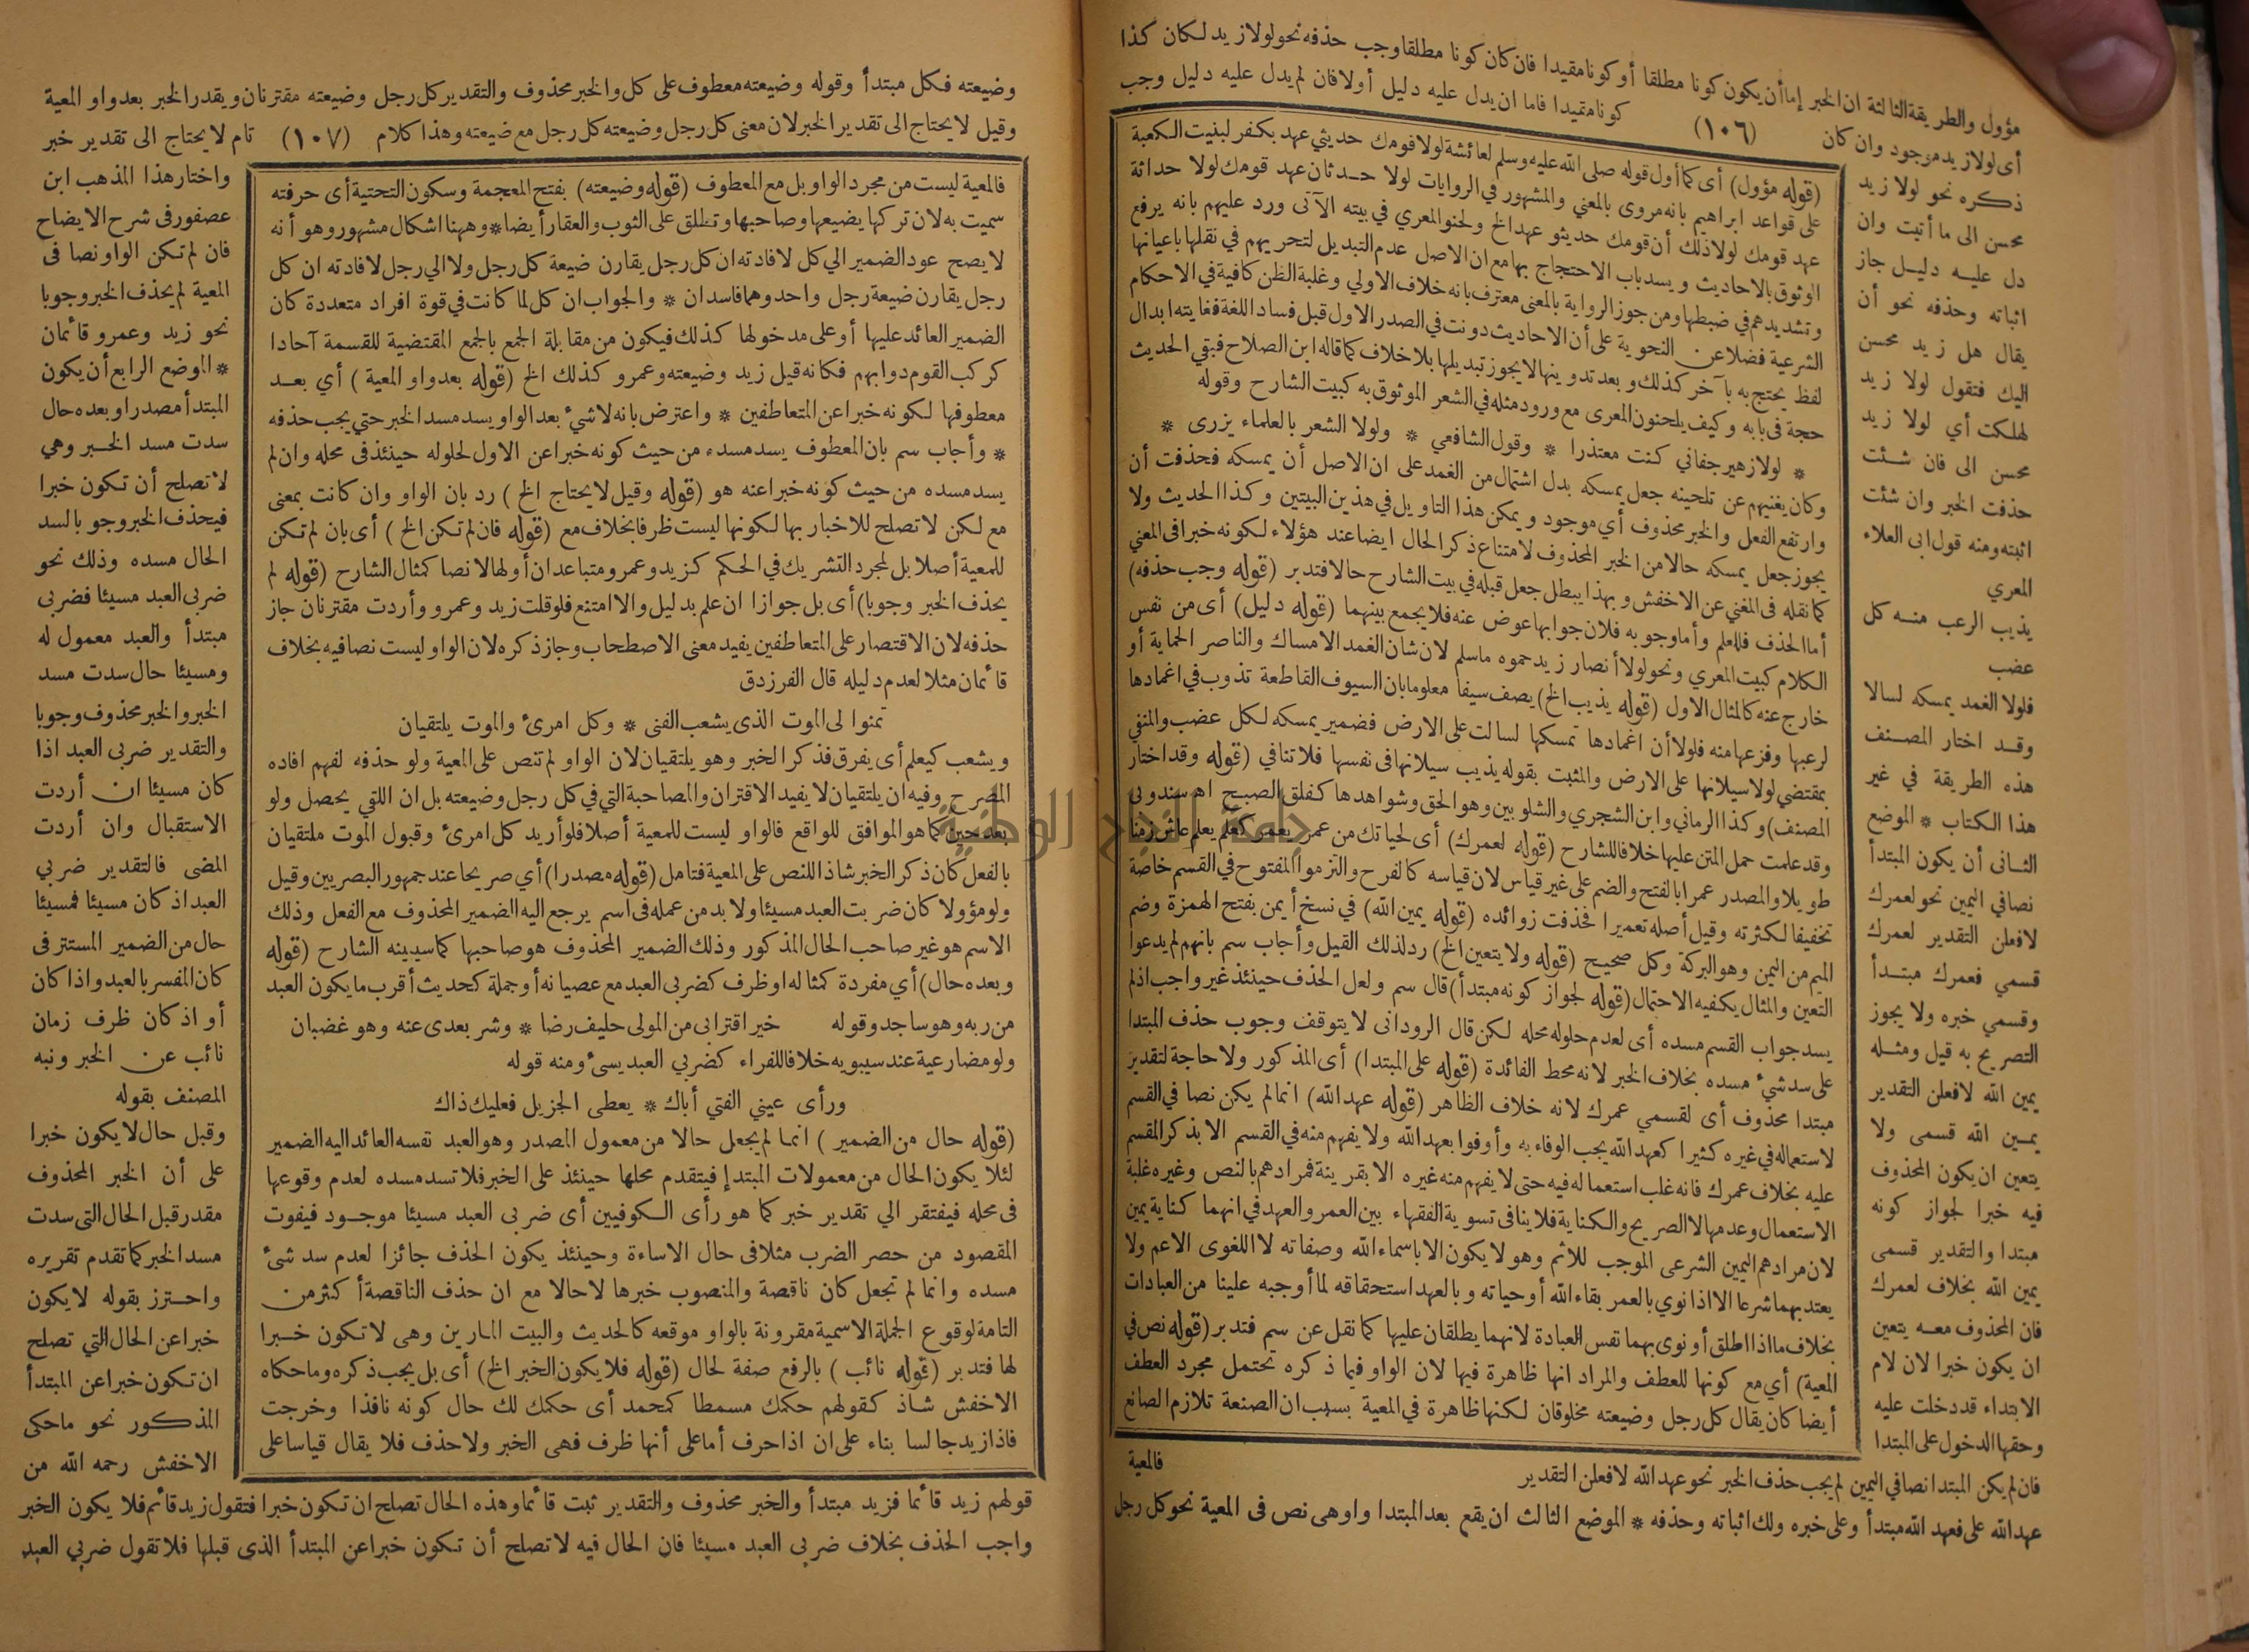 مؤول والطريقة الثالثة ان الخبر إما أن يكون كونا مطلقا أو كونا مقيدا فان كان كونا مطلقا وجب حذفه نحو لولا زيد لكان كذا
أى لولا زيد موجود وان كان (١٠٦) كونا مقيدا فاما ان يدل عليه دليل أولا فان لم يدل عليه دليل وجب
ذكره نحو لولا زيد
محسن الى ما أتيت وان
دل عليه دليل جاز
اثباته وحذفه نحو أن
يقال هل زيد محسن
اليك فتقول لولا زيد
لهلكت أي لولا زيد
محسن الى فان شئت
حذفت الخبر وان شئت
اثبته ومنه قول ابى العلاء
المعري
يذيب الرعب منه كل
عضب
فلولا الغمد يمسكه لسالا
وقد اختار المصنف
هذه الطريقة في غير
هذا الكتاب * الموضع
الثانى أن يكون المبتدأ
نصافي اليمين نحو لعمرك
لافعلن التقدير لعمرك
قسمي فعمرك مبتدأ
وقسمي خبره ولا يجوز
التصريح به قيل ومثله
يمين الله لافعلن التقدير
يمين الله قسمى ولا
يتعين ان يكون المحذوف
فيه خبرا لجواز كونه
مبتدا والتقدير قسمى
يمين الله بخلاف لعمرك
فان المحذوف معه يتعين
ان يكون خبرا لان لام
الابتداء قد دخلت عليه
وحقها الدخول على المبتدا
فان لم يكن المبتدا نصافي اليمين لم يجب حذف الخبر نحو عهد الله لافعلن التقدير
عهد الله على فعهد الله مبتدأ وعلى خبره ولك اثباته وحذفه * الموضع الثالث ان يقع بعد المبتدا واو هى نص فى المعية نحو كل رجل
(قوله مؤول) أى كما أول قوله صلى الله عليه وسلم لعائشة لولا قومك حديثي عهد بكفر لبنيت الكعبة
على قواعد ابراهيم بانه مروى بالمعني والمشهور في الروايات لولا حدثان عهد قومك لولا حداثة
عهد قومك لولا ذلك أن قومك حديثو عهد الخ ولحنو المعري في بيته الآتى ورد عليهم بانه يرفع
الوثوق بالاحاديث ويسد باب الاحتجاج بها مع ان الاصل عدم التبديل لتحريهم في نقلها باعيانها
وتشديدهم في ضبطها ومن جوز الرواية بالمعنى معترف بانه خلاف الاولي وغلبة الظن كافية في الاحكام
الشرعية فضلا عن النحوية على أن الاحاديث دونت في الصدر الاول قبل فساد اللغة فغايته ابدال
لفظ يحتج به بآخر كذلك وبعد تدوينها لا يجوز تبديلها بلا خلاف كما قاله ابن الصلاح فبقي الحديث
حجة فى بابه وكيف يلحنون المعرى مع ورود مثله في الشعر الموثوق به كبيت الشارح وقوله
* لولا زهير جفاني كنت معتذرا * وقول الشافعي * ولولا الشعر بالعلماء يزرى *
وكان يغنيهم عن تلحينه جعل يمسكه بدل اشتمال من الغمد على ان الاصل أن يمسكه فحذفت أن
وارتفع الفعل والخبر محذوف أي موجود ويمكن هذا التاويل في هذين البيتين وكذا الحديث ولا
يجوز جعل يمسكه حالا من الخبر المحذوف لامتناع ذكر الحال ايضا عند هؤلاء لكونه خبرا فى المعني
كما نقله فى المغني عن الاخفش وبهذا يبطل جعل قبله في بيت الشارح حالا فتدبر (قوله وجب حذفه)
أما الحذف فللعلم وأما وجوبه فلان جوابها عوض عنه فلا يجمع بينهما (قوله دليل) أى من نفس
الكلام كبيت المعري ونحو لولا أنصار زيد حموه ما سلم لان شان الغمد الامساك والناصر الحماية أو
خارج عنه كالمثال الاول (قوله يذيب الخ) يصف سيفا معلوما بان السيوف القاطعة تذوب في اغمادها
لرعبها وفزعها منه فلولا أن اغمادها تمسكها لسالت على الارض فضمير يمسكه لكل عضب والمنفي
بمقتضي لولا سيلانها على الارض والمثبت بقوله يذيب سيلانها فى نفسها فلا تنافي (قوله وقد اختار
المصنف) وكذا الرماني وابن الشجري والشلوبين وهو الحق وشواهدها كفلق الصبح اهـ سندوبى
وقد علمت حمل المتن عليها خلافا للشارح (قوله لعمرك) أى لحياتك من عمر يعمر كعلم يعلم عاش زمنا
طويلا والمصدر عمرا بالفتح والضم على غير قياس لان قياسه كالفرح والتزموا المفتوح في القسم خاصة
تخفيفا لكثرته وقيل أصله تعميرا فحذفت زوائده (قوله يمين الله) في نسخ أيمن بفتح الهمزة وضم
الميم من اليمن وهو البركة وكل صحيح (قوله ولا يتعين الخ) رد لذلك القيل وأجاب سم بانهم لم يدعوا
التعين والمثال يكفيه الاحتمال (قوله لجواز كونه مبتدأ) قال سم ولعل الحذف حينئذ غير واجب اذ لم
يسد جواب القسم مسده أى لعدم حلوله محله لكن قال الرودانى لا يتوقف وجوب حذف المبتدا
على سد شئ مسده بخلاف الخبر لانه محط الفائدة (قوله على المبتدا) أى المذكور ولا حاجة لتقدير
مبتدا محذوف أى لقسمي عمرك لانه خلاف الظاهر (قوله عهد الله) انما لم يكن نصا في القسم
لاستعماله في غيره كثيرا كعهد الله يجب الوفاء به وأوفوا بعهد الله ولا يفهم منه في القسم الا بذكر المقسم
عليه بخلاف عمرك فانه غلب استعماله فيه حتى لا يفهم منه غيره الا بقرينة فمرادهم بالنص وغيره غلبة
الاستعمال وعدمها لا الصريح والكناية فلا ينافى تسوية الفقهاء بين العمر والعهد في انهما كناية يمين
لان مرادهم اليمين الشرعى الموجب للاثم وهو لا يكون الا باسماء الله وصفاته لا اللغوى الاعم ولا
يعتد بهما شرعا الا اذا نوي بالعمر بقاء الله أو حياته وبالعهد استحقاقه لما أوجبه علينا من العبادات
بخلاف ما اذا اطلق أو نوى بهما نفس العبادة لانهما يطلقان عليها كما نقل عن سم فتدبر (قوله نص في
المعية) أي مع كونها للعطف والمراد انها ظاهرة فيها لان الواو فيما ذكره تحتمل مجرد العطف
أيضا كان يقال كل رجل وضيعته مخلوقان لكنها ظاهرة في المعية بسبب ان الصنعة تلازم الصانع
فالمعية
وضيعته فكل مبتدأ وقوله وضيعته معطوف على كل والخبر محذوف والتقدير كل رجل وضيعته مقترنان ويقدر الخبر بعد واو المعية
وقيل لا يحتاج الى تقدير الخبر لان معنى كل رجل وضيعته كل رجل مع ضيعته وهذا كلام (١٠٧) تام لا يحتاج الى تقدير خبر
واختار هذا المذهب ابن
عصفور فى شرح الايضاح
فان لم تكن الواو نصا فى
المعية لم يحذف الخبر وجوبا
نحو زيد وعمرو قائمان
* الموضع الرابع أن يكون
المبتدأ مصدرا وبعده حال
سدت مسد الخبر وهي
لا تصلح أن تكون خبرا
فيحذف الخبر وجوبا لسد
الحال مسده وذلك نحو
ضربى العبد مسيئا فضربى
مبتدأ والعبد معمول له
ومسيئا حال سدت مسد
الخبر والخبر محذوف وجوبا
والتقدير ضربى العبد اذا
كان مسيئا ان أردت
الاستقبال وان أردت
المضى فالتقدير ضربي
العبد اذ كان مسيئا فمسيئا
حال من الضمير المستتر فى
كان المفسر بالعبد واذا كان
أو اذ كان ظرف زمان
نائب عن الخبر ونبه
المصنف بقوله
وقبل حال لا يكون خبرا
على أن الخبر المحذوف
مقدر قبل الحال التى سدت
مسد الخبر كما تقدم تقريره
واحترز بقوله لا يكون
خبرا عن الحال التي تصلح
ان تكون خبرا عن المبتدأ
المذكور نحو ما حكى
الاخفش رحمه الله من
قولهم زيد قائما فزيد مبتدأ والخبر محذوف والتقدير ثبت قائما وهذه الحال تصلح ان تكون خبرا فتقول زيد قائم فلا يكون الخبر
واجب الحذف بخلاف ضربى العبد مسيئا فان الحال فيه لا تصلح أن تكون خبرا عن المبتدأ الذى قبلها فلا تقول ضربي العبد
فالمعية ليست من مجرد الواو بل مع المعطوف (قوله وضيعته) بفتح المعجمة وسكون التحتية أى حرفته
سميت به لان تركها يضيعها وصاحبها وتطلق على الثوب والعقار أيضا * وههنا اشكال مشهور وهو أنه
لا يصح عود الضمير الي كل لافادته ان كل رجل يقارن ضيعة كل رجل ولا الي رجل لافادته ان كل
رجل يقارن ضيعة رجل واحد وهما فاسدان * والجواب ان كل لما كانت في قوة افراد متعددة كان
الضمير العائد عليها أو على مدخولها كذلك فيكون من مقابلة الجمع بالجمع المقتضية للقسمة آحادا
كركب القوم دوابهم فكانه قيل زيد وضيعته وعمرو كذلك الخ (قوله بعد واو المعية) أي بعد
معطوفها لكونه خبرا عن المتعاطفين * واعترض بانه لا شئ بعد الواو يسد مسد الخبر حتي يجب حذفه
* وأجاب سم بان المعطوف يسد مسده من حيث كونه خبرا عن الاول لحلوله حينئذ فى محله وان لم
يسد مسده من حيث كونه خبرا عنه هو (قوله وقيل لا يحتاج الخ) رد بان الواو وان كانت بمعنى
مع لكن لا تصلح للاخبار بها لكونها ليست ظرفا بخلاف مع (قوله فان لم تكن الخ) أى بان لم تكن
للمعية أصلا بل لمجرد التشريك في الحكم كزيد وعمرو متباعدان أو لها لا نصا كمثال الشارح (قوله لم
يحذف الخبر وجوبا) أى بل جوازا ان علم بدليل والا امتنع فلو قلت زيد وعمرو وأردت مقترنان جاز
حذفه لان الاقتصار على المتعاطفين يفيد معنى الاصطحاب وجاز ذكره لان الواو ليست نصا فيه بخلاف
قائمان مثلا لعدم دليله قال الفرزدق
تمنوا لى الموت الذى يشعب الفتى * وكل امرئ والموت يلتقيان
ويشعب كيعلم أى يفرق فذكر الخبر وهو يلتقيان لان الواو لم تنص على المعية ولو حذفه لفهم افاده
المصرح وفيه ان يلتقيان لا يفيد الاقتران والمصاحبة التي في كل رجل وضيعته بل ان اللقي يحصل ولو
بعد حين كما هو الموافق للواقع فالواو ليست للمعية أصلا فلو أريد كل امرئ وقبول الموت ملتقيان
بالفعل كان ذكر الخبر شاذا للنص على المعية فتامل (قوله مصدرا) أي صريحا عند جمهور البصريين وقيل
ولو مؤولا كان ضربت العبد مسيئا ولا بد من عمله فى اسم يرجع اليه الضمير المحذوف مع الفعل وذلك
الاسم هو غير صاحب الحال المذكور وذلك الضمير المحذوف هو صاحبها كما سيبينه الشارح (قوله
وبعده حال) أي مفردة كمثاله او ظرف كضربى العبد مع عصيانه أو جملة كحديث أقرب ما يكون العبد
من ربه وهو ساجد وقوله خير اقترابى من المولى حليف رضا * وشر بعدى عنه وهو غضبان
ولو مضارعية عند سيبويه خلافا للفراء كضربي العبد يسئ ومنه قوله
ورأى عيني الفتي أباك * يعطى الجزيل فعليك ذاك
(قوله حال من الضمير) انما لم يجعل حالا من معمول المصدر وهو العبد نفسه العائد اليه الضمير
لئلا يكون الحال من معمولات المبتدإ فيتقدم محلها حينئذ على الخبر فلا تسد مسده لعدم وقوعها
فى محله فيفتقر الي تقدير خبر كما هو رأى الكوفيين أى ضربى العبد مسيئا موجود فيفوت
المقصود من حصر الضرب مثلا فى حال الاساءة وحينئذ يكون الحذف جائزا لعدم سد شئ
مسده وانما لم تجعل كان ناقصة والمنصوب خبرها لا حالا مع ان حذف الناقصة أكثر من
التامة لوقوع الجملة الاسمية مقرونة بالواو موقعه كالحديث والبيت المارين وهى لا تكون خبرا
لها فتدبر (قوله نائب) بالرفع صفة لحال (قوله فلا يكون الخبر الخ) أى بل يجب ذكره وما حكاه
الاخفش شاذ كقولهم حكمك مسمطا كمحمد أى حكمك لك حال كونه نافذا وخرجت
فاذا زيد جالسا بناء على ان اذا حرف أما على أنها ظرف فهى الخبر ولا حذف فلا يقال قياسا على
جامعة النجاح الوطنية